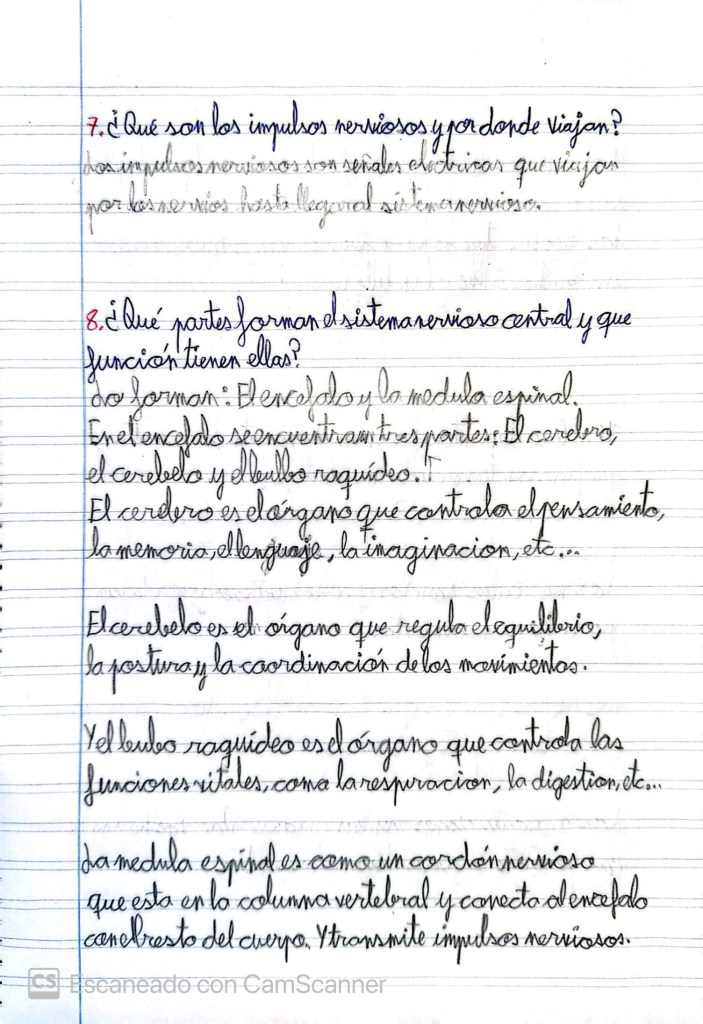 7. ¿Qué son los impulsos nerviosos y por donde viajan?
Los impulsos nerviosos son señales eléctricas que viajan
por los nervios hasta llegar al sistema nervioso.
8. ¿Qué partes forman el sistema nervioso central y que
función tienen ellas?
Lo forman: El encefalo y la medula espinal.
En el encefalo se encuentran tres partes: El cerebro,
el cerebelo y el bulbo raquídeo.
El cerebro es el órgano que controla el pensamiento,
la memoria, el lenguaje, la imaginacion, etc...
El cerebelo es el órgano que regula el equilibrio,
la postura y la coordinación de los movimientos.
Y el bulbo raquídeo es el órgano que controla las
funciones vitales, como la respiracion, la digestion, etc...
La medula espinal es como un cordón nervioso
que esta en la columna vertebral y conecta al encefalo
con el resto del cuerpo. Y transmite impulsos nerviosos.
CS Escaneado con CamScanner